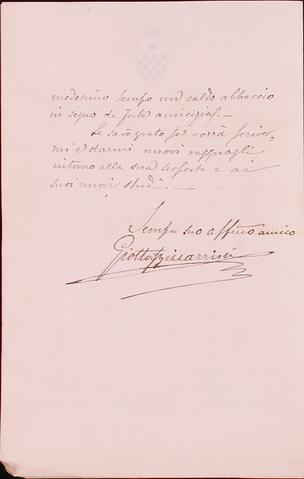 medesimo tempo un caldo abbraccio
in segno di forte amicizia. —
Le sarò grato se vorrà scriver-
mi e darmi nuovi ragguagli
intorno alla sua scoperta e ai
suoi nuovi studi. —
Sempre suo aff.mo amico
Giotto Bizzarrini